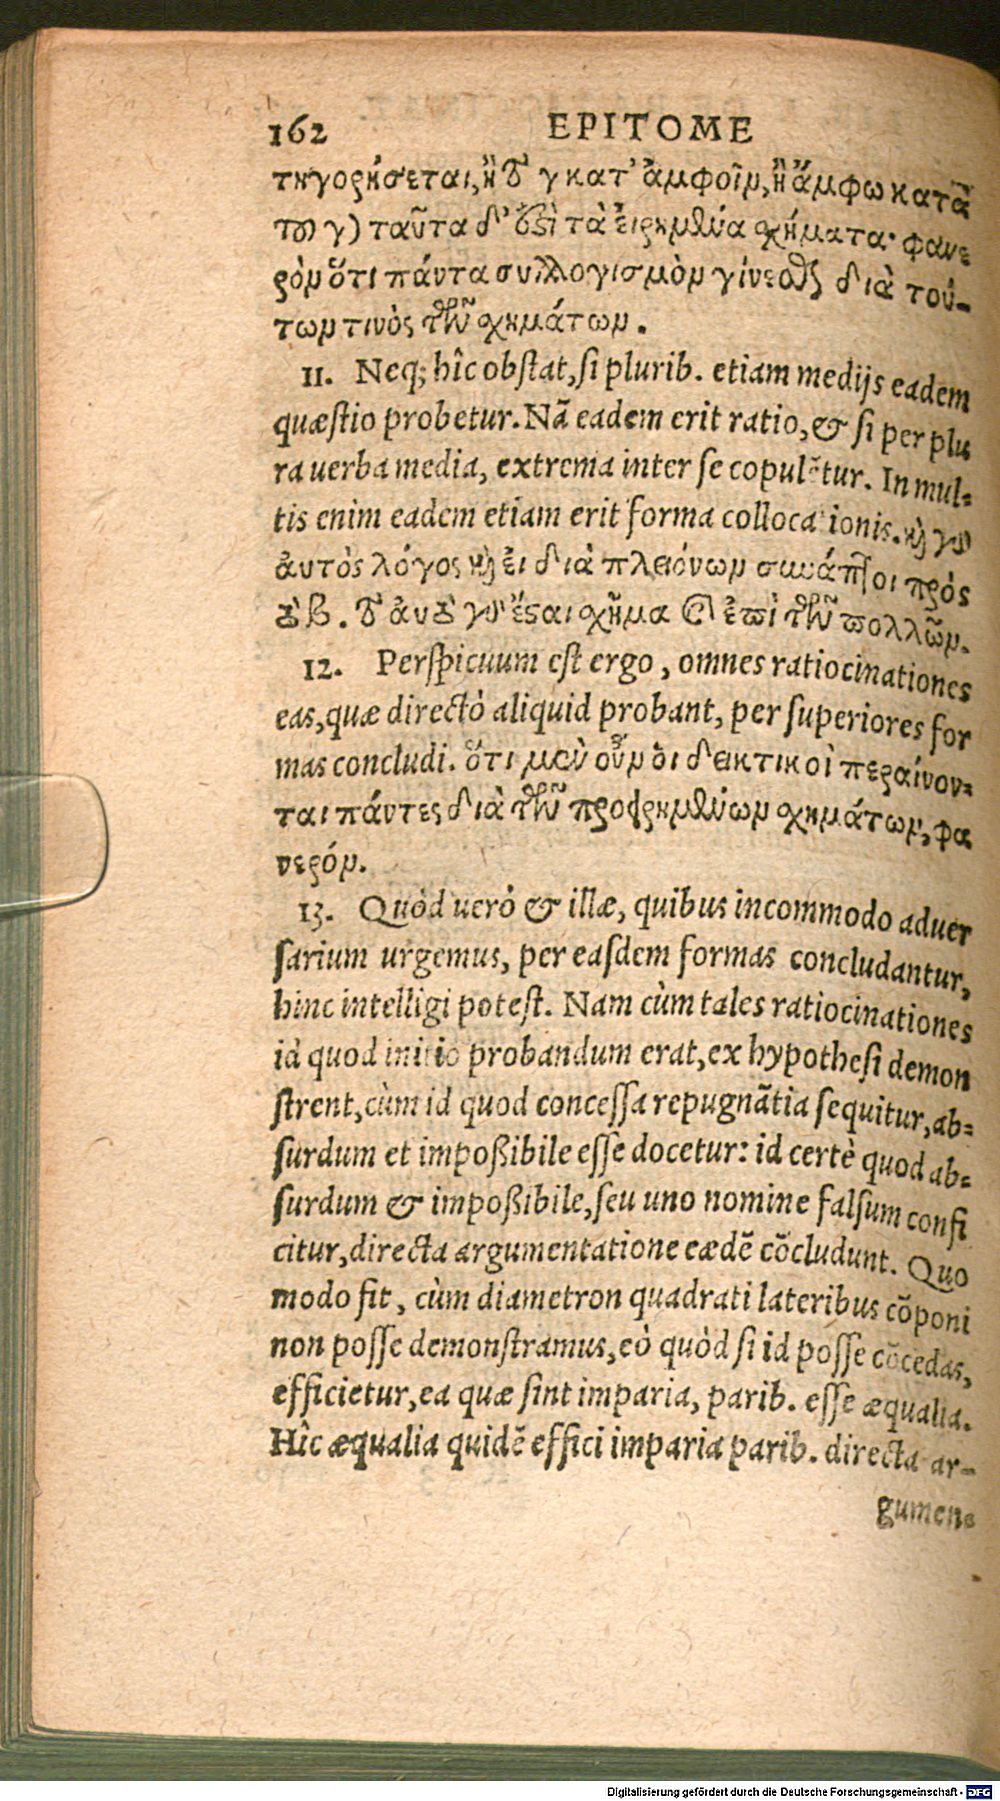 162 EPITOME
τηγορήσεται, ἢ τὸ γ κατ' ἀμφοῖν, ἢ ἄμφω κατὰ
τοῦ γ) ταῦτα δ' ἐστὶ τὰ εἰρημένα σχήματα· φανε
ρὸν ὅτι πάντα συλλογισμὸν γίνεσθαι διὰ τού-
των τινὸς τῶν σχημάτων.
11. Neq; hîc obstat, si plurib. etiam medijs eadem
quæstio probetur. Nã eadem erit ratio, & si per plu
ra uerba media, extrema inter se copulẽtur. In mul-
tis enim eadem etiam erit forma collocationis. καὶ γὰρ
αὐτὸς λόγος καὶ εἰ διὰ πλειόνων συνάπτοι πρὸς
τὸ β. τὸ αὐτὸ γὰρ ἔσται σχῆμα καὶ ἐπὶ τῶν πολλῶν.
12. Perspicuum est ergo, omnes ratiocinationes
eas, quæ directò aliquid probant, per superiores for
mas concludi. ὅτι μὲν οὖν οἱ δεικτικοὶ περαίνον-
ται πάντες διὰ τῶν προειρημένων σχημάτων, φα
νερόν.
13. Quòd uerò & illæ, quibus incommodo aduer
sarium urgemus, per easdem formas concludantur,
hinc intelligi potest. Nam cùm tales ratiocinationes
id quod initio probandum erat, ex hypothesi demon
strent, cùm id quod concessa repugnãtia sequitur, ab-
surdum et impoßibile esse docetur: id certè quod ab-
surdum & impoßibile, seu uno nomine falsum confi
citur, directa argumentatione eædẽ cõcludunt. Quo
modo fit, cùm diametron quadrati lateribus cõponi
non posse demonstramus, eò quòd si id posse cõcedas,
efficietur, ea quæ sint imparia, parib. esse æqualia.
Hîc æqualia quidẽ effici imparia parib. directa ar-
gumen-
Digitalisierung gefördert durch die Deutsche Forschungsgemeinschaft - DFG